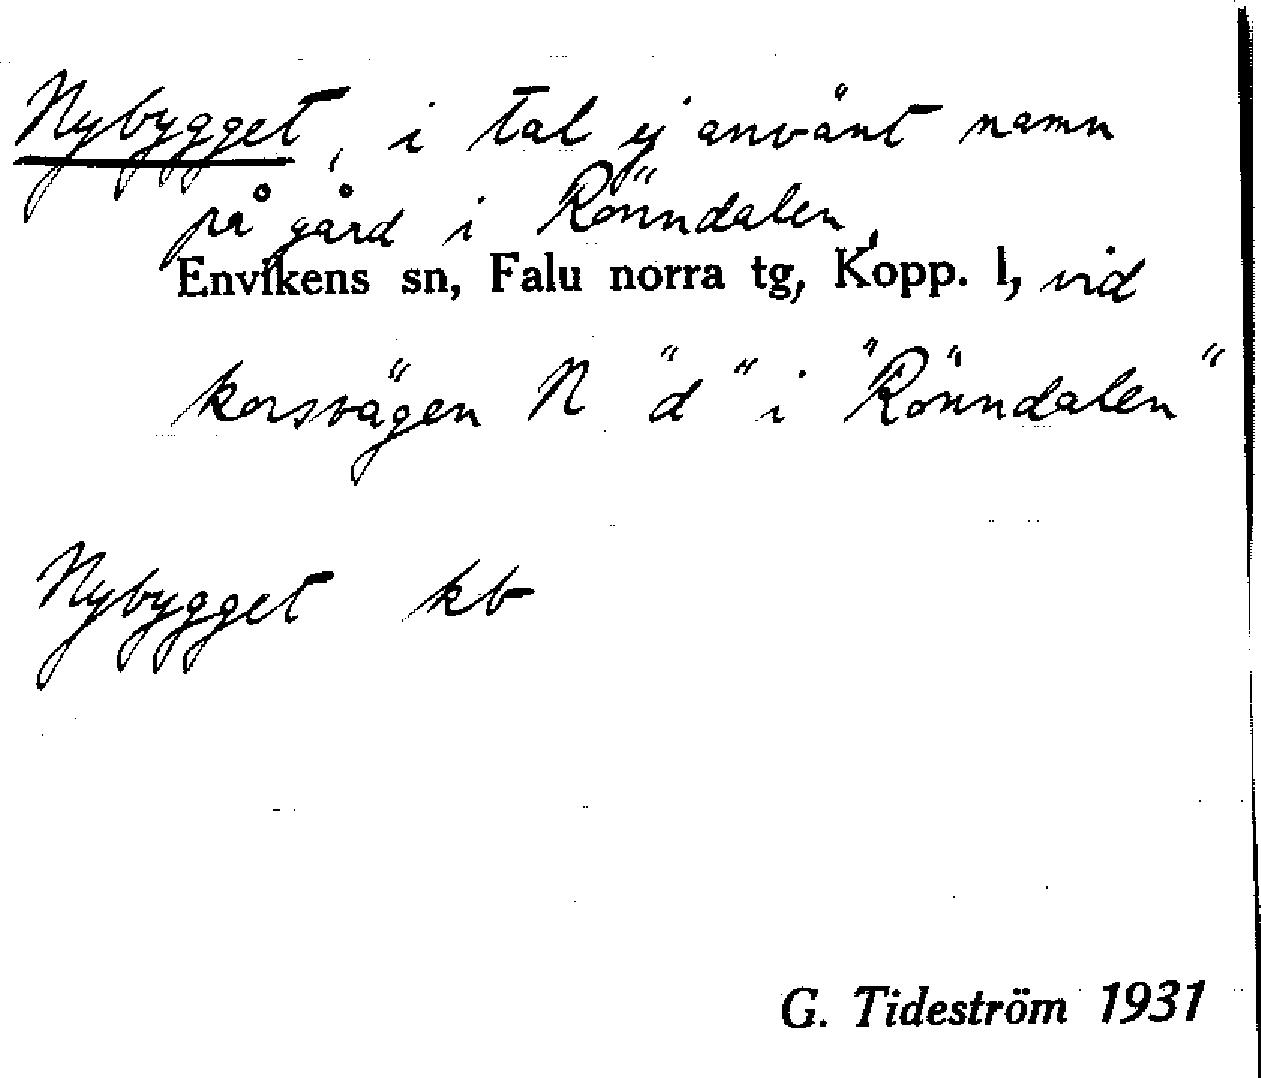 Nybygget, i tal ej använt namn
på gård i Rönndalen,
Envikens sn, Falu norra tg, Kopp. l, vid
korsvägen N "d" i "Rönndalen"
Nybygget kb
G. Tideström 1931